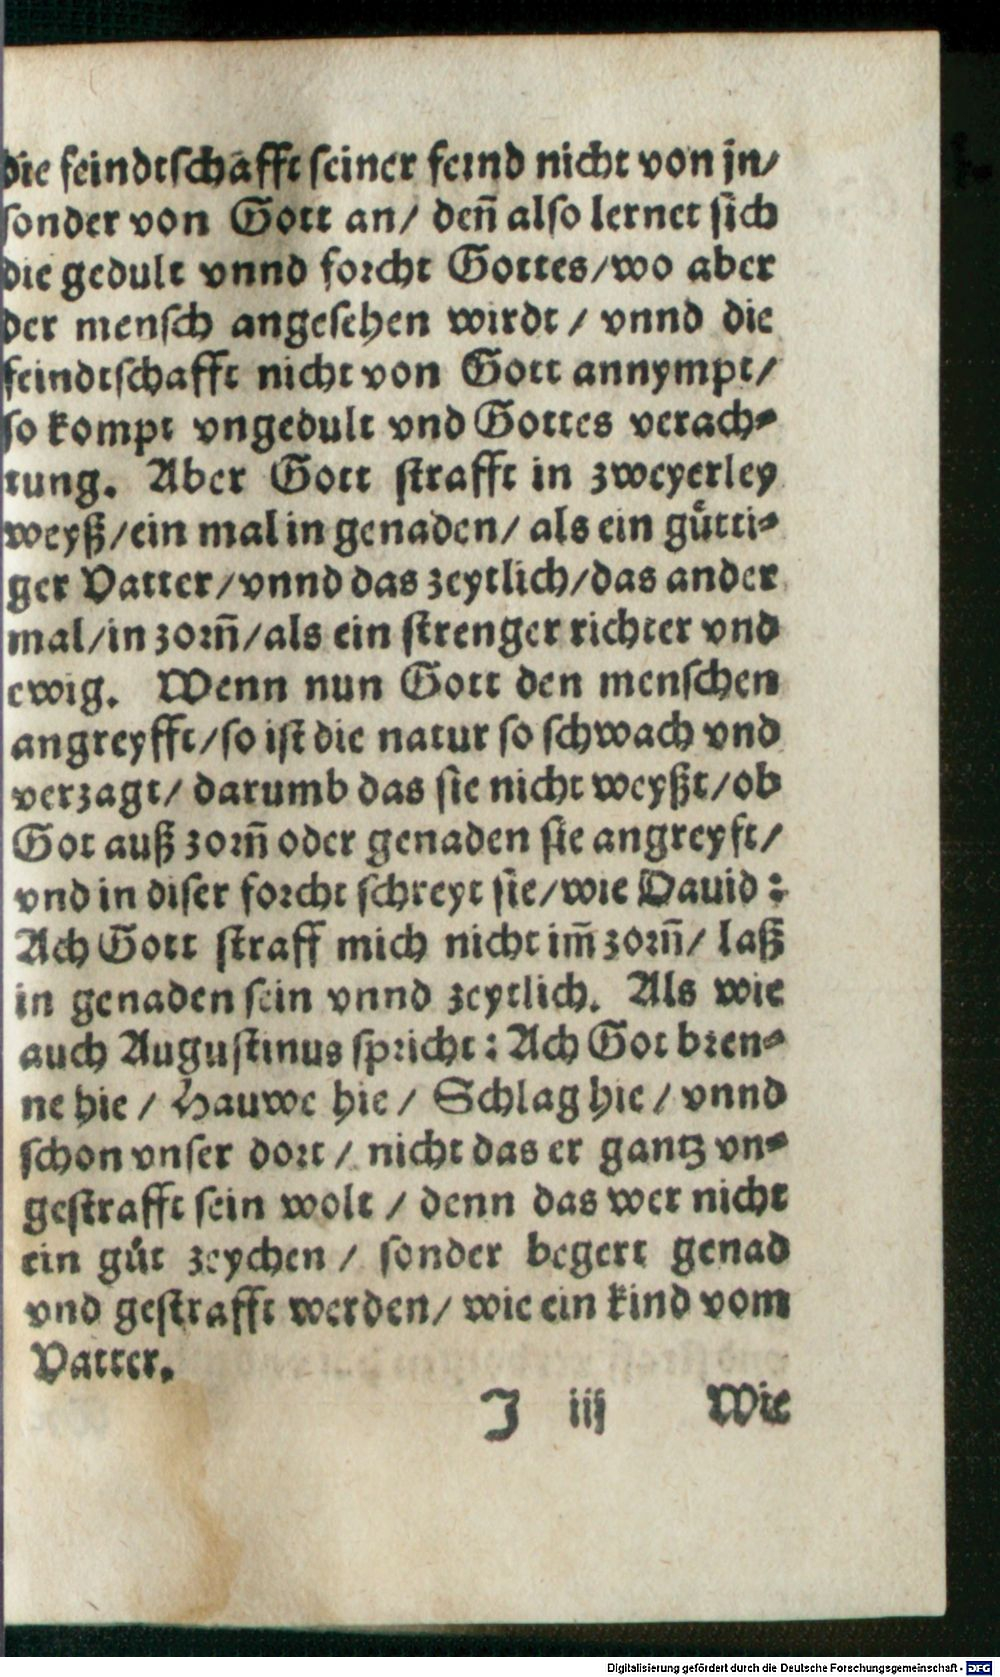 die feindtschafft seiner feind nicht von jn/
sonder von Gott an/ deñ also lernet sich
die gedult vnnd forcht Gottes/wo aber
der mensch angesehen wirdt / vnnd die
feindtschafft nicht von Gott annympt/
so kompt vngedult vnd Gottes verach⸗
tung. Aber Gott strafft in zweyerley
weyß/ein mal in genaden/ als ein guͤtti⸗
ger Vatter/vnnd das zeytlich/das ander
mal/in zorñ/als ein strenger richter vnd
ewig. Wenn nun Gott den menschen
angreyfft/so ist die natur so schwach vnd
verzagt/ darumb das sie nicht weyßt/ob
Got auß zorñ oder genaden sie angreyft/
vnd in diser forcht schreyt sie/wie Dauid:
Ach Gott straff mich nicht im̃ zorñ/ laß
in genaden sein vnnd zeytlich. Als wie
auch Augustinus spricht: Ach Got bren⸗
ne hie / Hauwe hie / Schlag hie / vnnd
schon vnser dort / nicht das er gantz vn⸗
gestrafft sein wolt / denn das wer nicht
ein guͤt zeychen / sonder begert genad
vnd gestrafft werden/ wie ein kind vom
Vatter.
J iij Wie
Digitalisierung gefördert durch die Deutsche Forschungsgemeinschaft - DFG